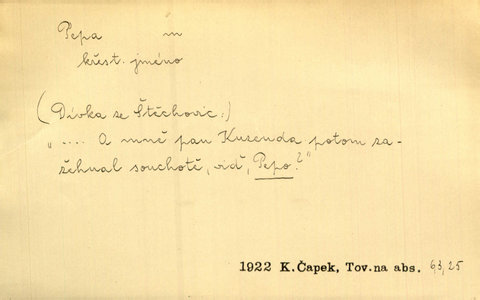 Pepa m
křest. jméno
(Dívka se Štěchovic:)
„.... A mně pan Kuzenda potom za-
žehnal souchotě, viď, Pepo?"
1922 K.Čapek, Tov.na abs. 63,25